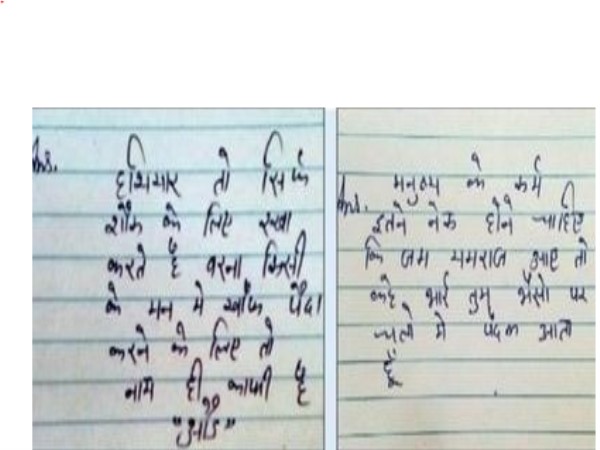 Ans.
हथियार तो सिर्फ
शौक के लिए रखा
करते है वरना किसी
के मन मे खौफ पैदा
करने के लिए तो
नाम ही काफी है
Ans.
मनुष्य के कर्म
इतने नेक होने चाहिए
कि जब यमराज आए तो
कहे भाई तुम भैंसे पर
चलो मे पैदल आता
हूँ